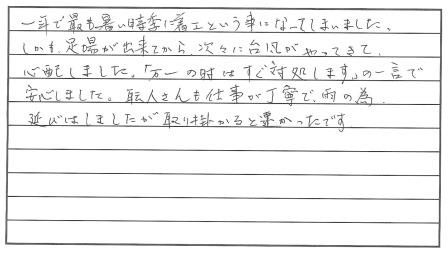 一年で最も暑い時季に着工という事になってしまいました。
しかも、足場が出来てから、次々に台風がやってきて、
心配しました。「万一の時はすぐ対処します」の一言で
安心しました。職人さんも仕事が丁寧で、雨の為、
延びはしましたが取り掛かると速かったです